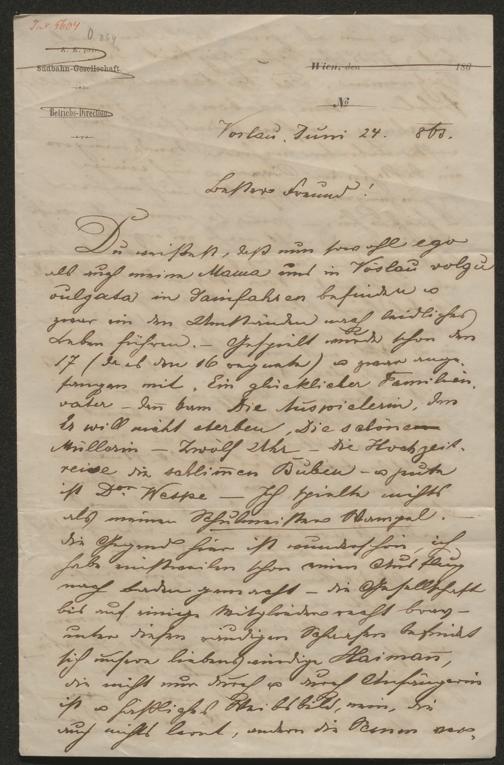 J.N. 5604
Südbahn-Gesellschaft.
Betriebs-Direction.
Wien, den 186
No
Vöslau, Juni 24. 865.
Bester Freund!
Du weißt, daß nun sowohl ego
als auch meine Mama uns in Vöslau volgu
vulgata in befinden u
zwar ein den Umständen nach leidliches
Leben führen. – Gespielt wurde schon den
17 (da es den 16 regnete) u zwar ange-
fangen mit „Ein glücklicher Familien-
vater – dann kam Die Auspielerin, dan
Er will nicht sterben, Die schöne
Müllerin – Zwölf Uhr – die Hochzeit-
reise die schlimen Buben – u heute
ist Dor Wespe – Ich spielte nichts
als meinen Schulmeister Wampel.
Die Gegend hier ist wunderschön, ich
habe mittweilen schon einen Ausflug
nach Baden gemacht – die Gesellschaft
bis auf einige Mitglieder recht brav –
unter diesen räudigen Schafen befindet
sich unsere liebenswürdige Haiman,
die nicht nur durch u durch Anfängerin
ist u häßliches Weibsbild, nein, die
auch nichts lernt, andern die Scenen ver-